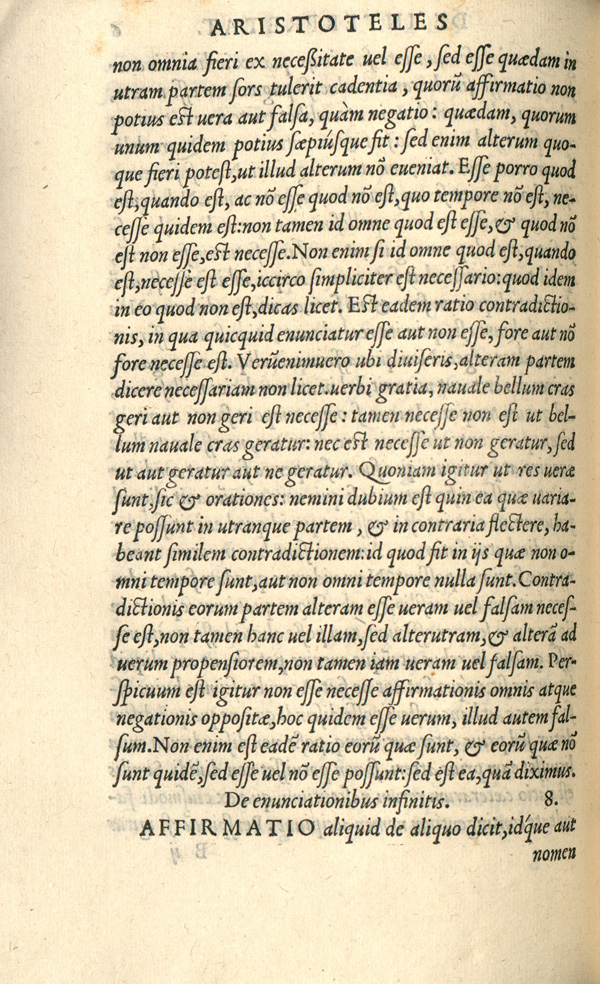 ARISTOTELES
non omnia fieri ex neceßitate uel esse, sed esse quædam in
utram partem sors tulerit cadentia, quorū affirmatio non
potius est uera aut falsa, quàm negatio: quædam, quorum
unum quidem potius sæpiúsque fit: sed enim alterum quo-
que fieri potest,ut illud alterum nō eueniat. Esse porro quod
est,quando est, ac nō esse quod nō est,quo tempore nō est, ne-
cesse quidem est:non tamen id omne quod est esse,& quod nō
est non esse,est necesse.Non enim si id omne quod est,quando
est,necesse est esse,iccirco simpliciter est necessario:quod idem
in eo quod non est,dicas licet. Est eadem ratio contradictio-
nis, in qua quicquid enunciatur esse aut non esse, fore aut nō
fore necesse est. Verūenimuero ubi diuiseris,alteram partem
dicere necessariam non licet.uerbi gratia, nauale bellum cras
geri aut non geri est necesse: tamen necesse non est ut bel-
lum nauale cras geratur: nec est necesse ut non geratur, sed
ut aut geratur aut ne geratur. Quoniam igitur ut res ueræ
sunt,sic & orationes: nemini dubium est quin ea quæ uaria-
re possunt in utranque partem, & in contraria flectere, ha-
beant similem contradictionem:id quod fit in ijs quæ non o-
mni tempore sunt,aut non omni tempore nulla sunt.Contra-
dictionis eorum partem alteram esse ueram uel falsam neces-
se est,non tamen hanc uel illam,sed alterutram,& alterā ad
uerum propensiorem,non tamen iam ueram uel falsam. Per-
spicuum est igitur non esse necesse affirmationis omnis atque
negationis oppositæ,hoc quidem esse uerum, illud autem fal-
sum.Non enim est eadē ratio eorū quæ sunt, & eorū quæ nō
sunt quidē,sed esse uel nō esse possunt:sed est ea,quā diximus.
De enunciationibus infinitis. 8.
AFFIRMATIO aliquid de aliquo dicit,id́que aut
nomen